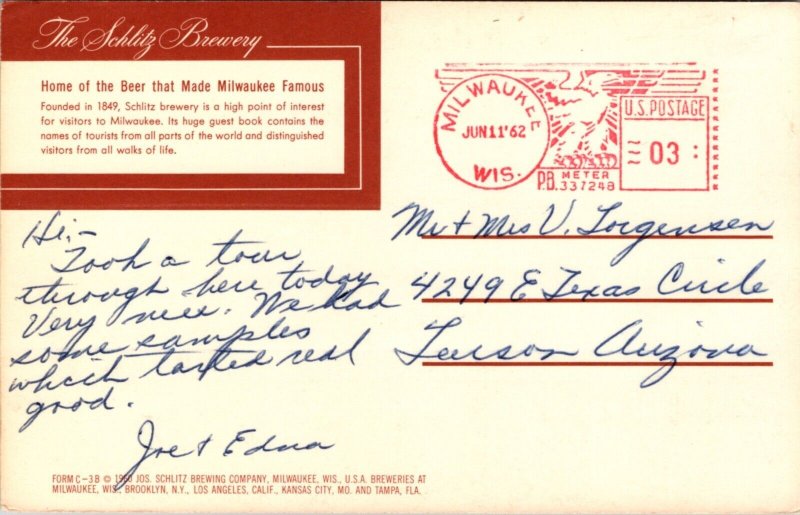 The Schlitz Brewery
Home of the Beer that Made Milwaukee Famous
Founded in 1849, Schlitz brewery is a high point of interest
for visitors to Milwaukee. Its huge guest book contains the
names of tourists from all parts of the world and distinguished
visitors from all walks of life.
MILWAUKEE
JUN11'62
WIS.
U.S. POSTAGE
03
P.B. METER
337248
Hi,-
Took a tour
through here today
Very nice. We had
some samples
which tasted real
good.
Joe + Edna
Mr + Mrs V. Jorgensen
4249 E Texas Circle
Tucson Arizona
FORM C-3B © 1960 JOS. SCHLITZ BREWING COMPANY, MILWAUKEE, WIS., U.S.A. BREWERIES AT
MILWAUKEE, WIS., BROOKLYN, N.Y., LOS ANGELES, CALIF., KANSAS CITY, MO. AND TAMPA, FLA.